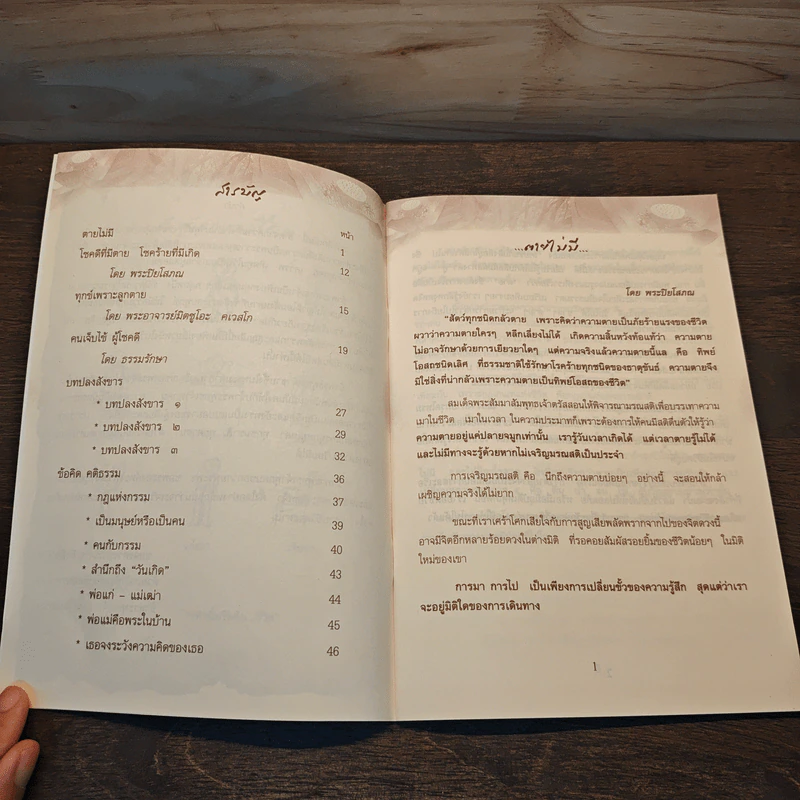 สารบัญ
หน้า
ตายไม่มี 1
โชคดีที่มีตาย โชคร้ายที่มีเกิด
โดย พระปิยโสภณ 12
ทุกข์เพราะลูกตาย
โดย พระอาจารย์มิตซูโอะ คเวสโก 15
คนเจ็บไข้ ผู้โชคดี
โดย ธรรมรักษา 19
บทปลงสังขาร
* บทปลงสังขาร ๑ 27
* บทปลงสังขาร ๒ 29
* บทปลงสังขาร ๓ 32
ข้อคิด คติธรรม 36
* กฎแห่งกรรม 37
* เป็นมนุษย์หรือเป็นคน 39
* คนกับกรรม 40
* สำนึกถึง "วันเกิด" 43
* พ่อแก่ - แม่เฒ่า 44
* พ่อแม่คือพระในบ้าน 45
* เธอจงระวังความคิดของเธอ 46
...ตายไม่มี...
โดย พระปิยโสภณ
"สัตว์ทุกชนิดกลัวตาย เพราะคิดว่าความตายเป็นภัยร้ายแรงของชีวิต
ผวาว่าความตายใครๆ หลีกเลี่ยงไม่ได้ เกิดความสิ้นหวังท้อแท้ว่า ความตาย
ไม่อาจรักษาด้วยการเยียวยาใดๆ แต่ความจริงแล้วความตายนี้แล คือ ทิพย์
โอสถชนิดเลิศ ที่ธรรมชาติใช้รักษาโรคร้ายทุกชนิดของธาตุขันธ์ ความตายจึง
มิใช่สิ่งที่น่ากลัวเพราะความตายเป็นทิพย์โอสถของชีวิต"
สมเด็จพระสัมมาสัมพุทธเจ้าตรัสสอนให้พิจารณามรณสติเพื่อบรรเทาความ
เมาในชีวิต เมาในเวลา ในความประมาทก็เพราะต้องการให้คนมีสติตื่นตัวให้รู้ว่า
ความตายอยู่แค่ปลายจมูกเท่านั้น เรารู้วันเวลาเกิดได้ แต่เวลาตายรู้ไม่ได้
และไม่มีทางจะรู้ด้วยหากไม่เจริญมรณสติเป็นประจำ
การเจริญมรณสติ คือ นึกถึงความตายบ่อยๆ อย่างนี้ จะสอนให้กล้า
เผชิญความจริงได้ไม่ยาก
ขณะที่เราเศร้าโศกเสียใจกับการสูญเสียพลัดพรากจากไปของจิตดวงนี้
อาจมีจิตอีกหลายร้อยดวงในต่างมิติ ที่รอคอยสัมผัสรอยยิ้มของชีวิตน้อยๆ ในมิติ
ใหม่ของเขา
การมา การไป เป็นเพียงการเปลี่ยนขั้วของความรู้สึก สุดแต่ว่าเรา
จะอยู่มิติใดของการเดินทาง
1